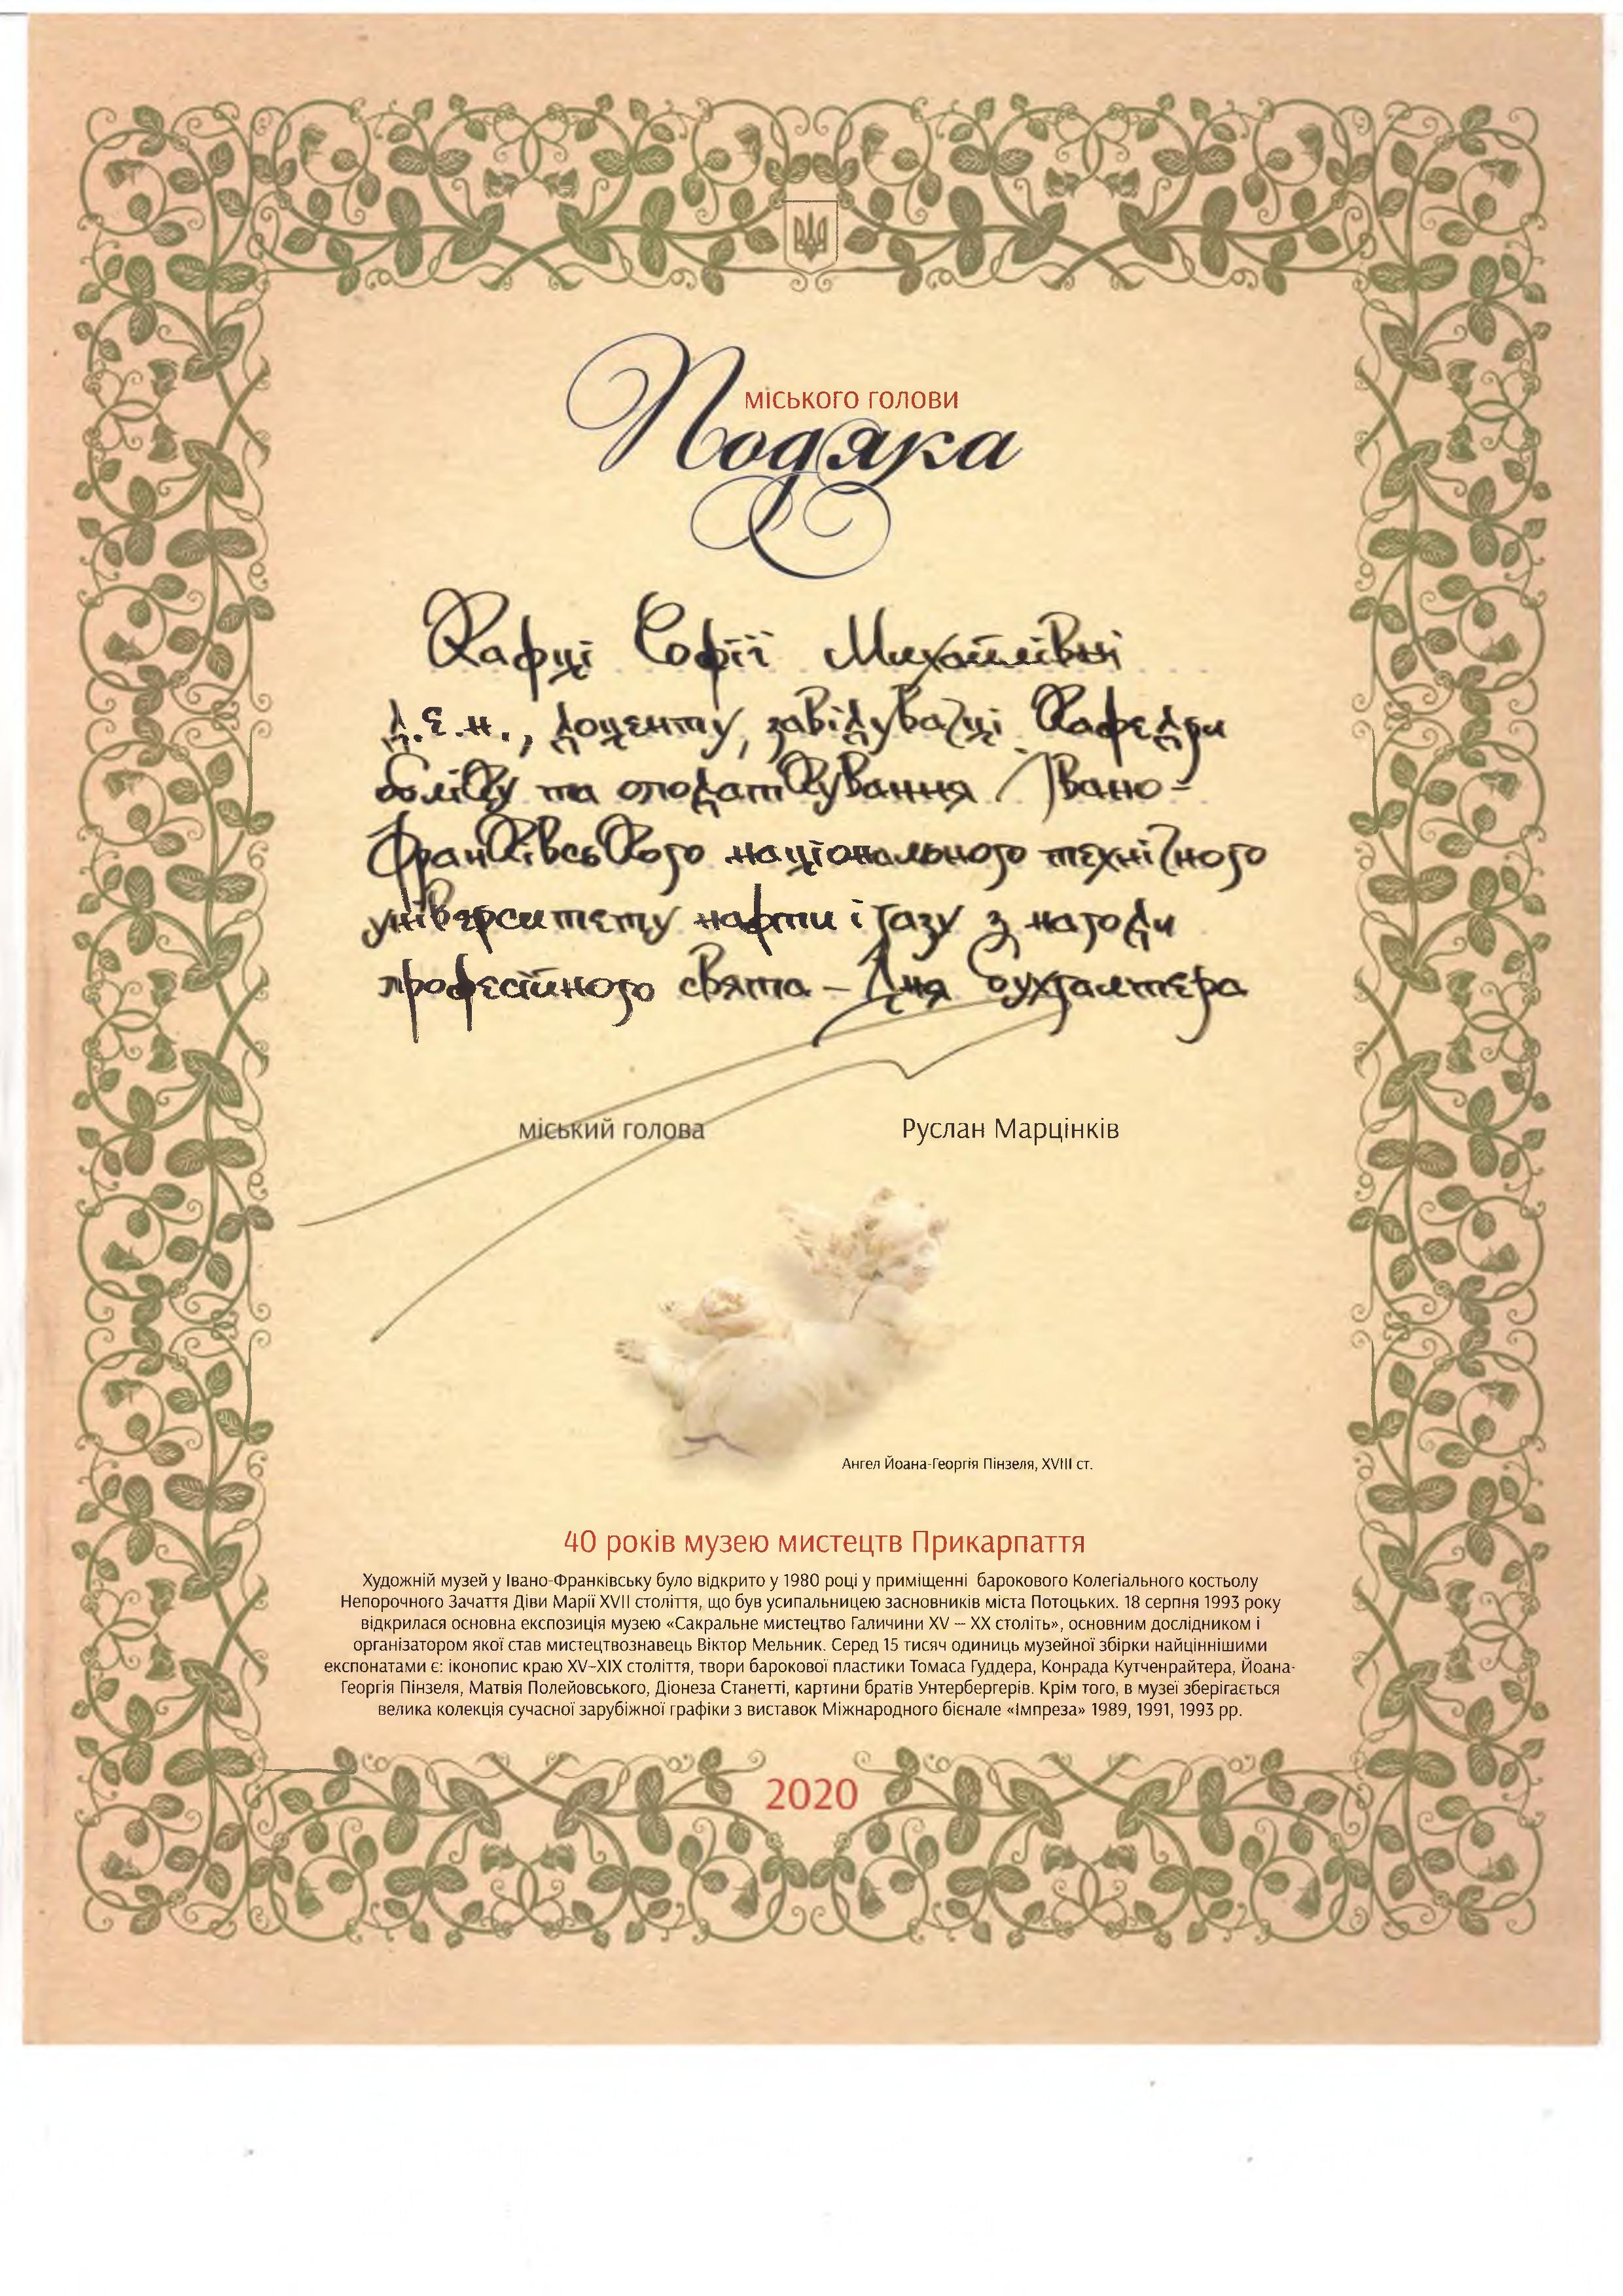 міського голови
Подяка
Кафці Софії Михайлівні
д.е.н., доценту, завідувачці кафедри
обліку та оподаткування Івано-
Франківського національного технічного
університету нафти і газу з нагоди
професійного свята – Дня бухгалтера
міський голова Руслан Марцінків
Ангел Йоана-Георгія Пінзеля, XVIII ст.
40 років музею мистецтв Прикарпаття
Художній музей у Івано-Франківську було відкрито у 1980 році у приміщенні барокового Колегіального костьолу
Непорочного Зачаття Діви Марії XVII століття, що був усипальницею засновників міста Потоцьких. 18 серпня 1993 року
відкрилася основна експозиція музею «Сакральне мистецтво Галичини XV – XX століть», основним дослідником і
організатором якої став мистецтвознавець Віктор Мельник. Серед 15 тисяч одиниць музейної збірки найціннішими
експонатами є: іконопис краю XV–XIX століття, твори барокової пластики Томаса Гуддера, Конрада Кутченрайтера, Йоана-
Георгія Пінзеля, Матвія Полейовського, Діонеза Станетті, картини братів Унтербергерів. Крім того, в музеї зберігається
велика колекція сучасної зарубіжної графіки з виставок Міжнародного бієнале «Імпреза» 1989, 1991, 1993 рр.
2020